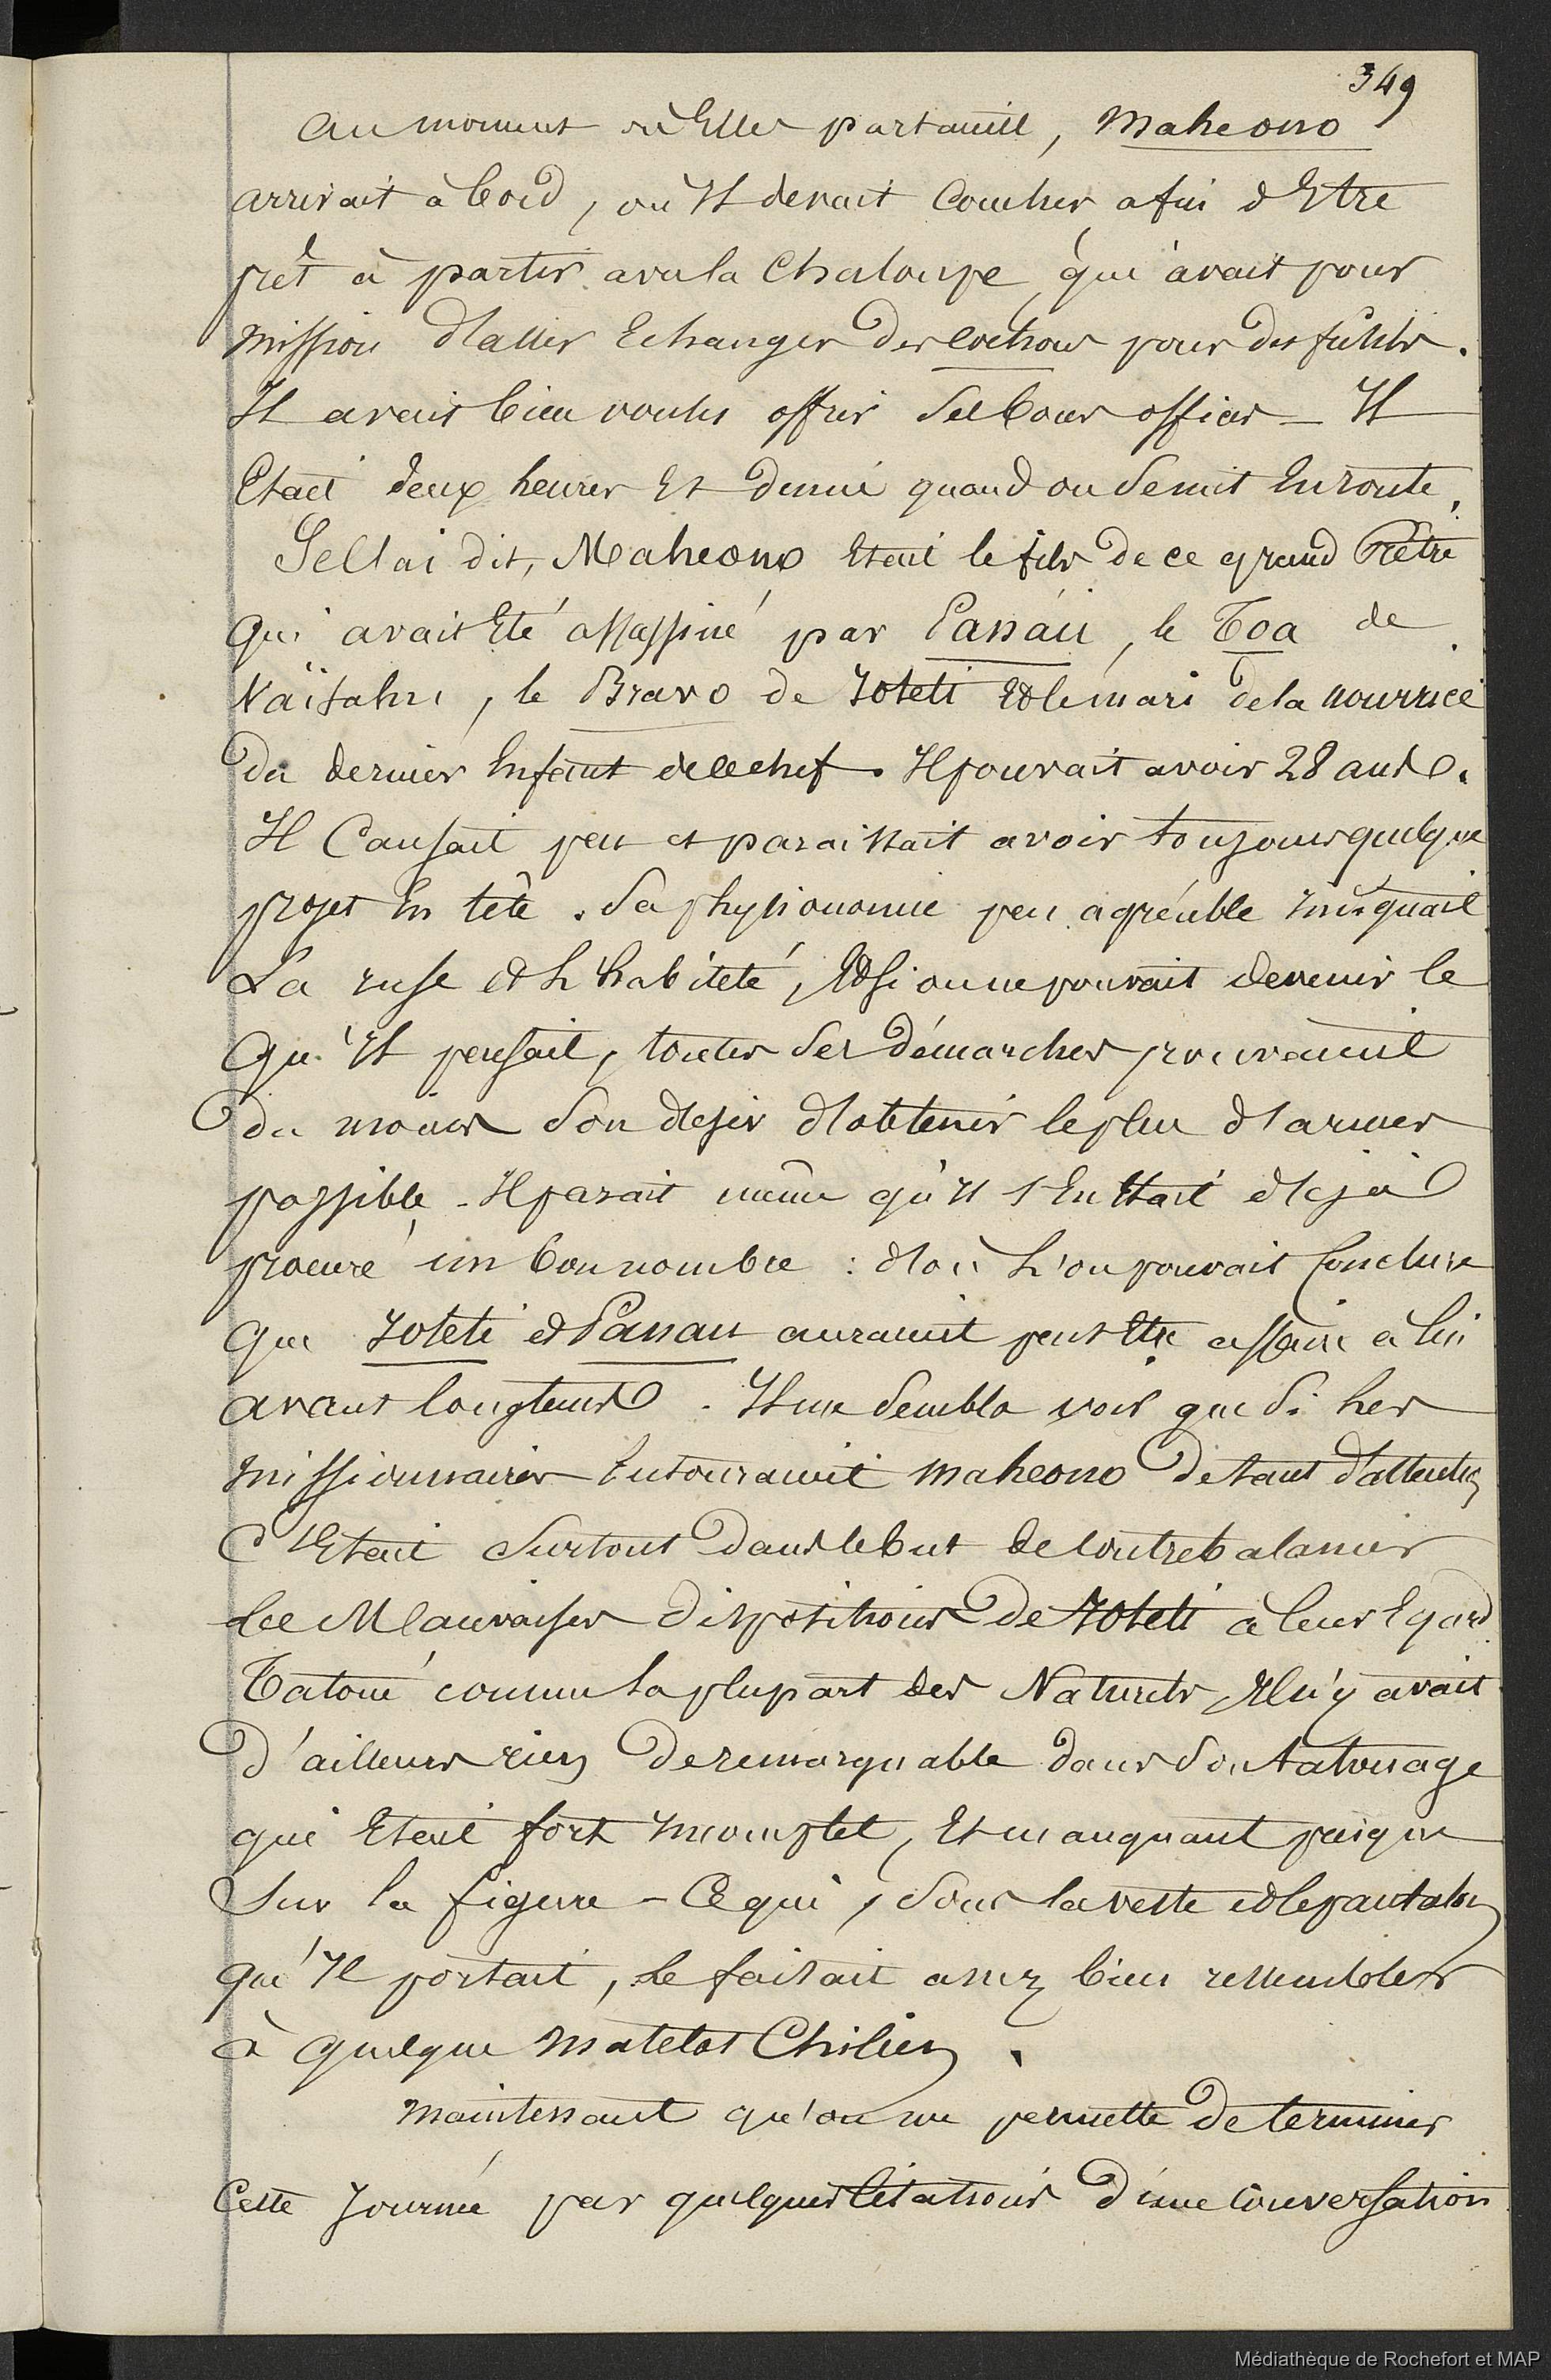 349
Au moment où Elles partaient, Maheono
arrivait à bord, où Il devait Coucher afin d'Etre
prêt à partir avec la Chaloupe qui avait pour
mission d'aller Echanger des cochons pour des fusils.
Il avait bien voulu offrir ses bons offices – Il
Etait deux heures Et demie quand on se mit En route.
Je l'ai dit, Maheono Etait le fils de ce grand Prêtre
qui avait Eté assassiné par Panau, le Toa de
Vaïtahu, le Bravo de Iotété Et le mari de la nourrice
du dernier Enfant de ce chef. Il pouvait avoir 28 ans.
Il Causait peu et paraissait avoir toujours quelque
projet En tête. Sa physionomie peu agréable indiquait
La ruse et L'habileté, Et si on ne pouvait deviner ce
qu'Il pensait, toutes ses démarches prouvaient
du moins son désir d'obtenir le plus d'armes
possible – Il parait même qu'Il s'En Etait déjà
procuré un bon nombre : d'où L'on pouvait Conclure
que Iotété et Panau auraient peut Etre affaire à lui
avant longtems. Il me sembla voir que si Les
missionnaires Entouraient Maheono de tant d'attention
C'Etait surtout dans le but de contrebalancer
les Mauvaises dispositions de Iotété à leur Egard
Tatoué comme la plupart des Naturels, Il n'y avait
d'ailleurs rien de remarquable dans son tatouage
qui Etait fort Incomplet, Et manquant presque
sur la figure – Ce qui, sous la veste et le pantalon
qu'Il portait, le faisait assez bien ressembler
à quelque matelot Chilien.
Maintenant qu'on me permette de terminer
Cette Journée par quelques Citations d'une Conversation
Médiathèque de Rochefort et MAP